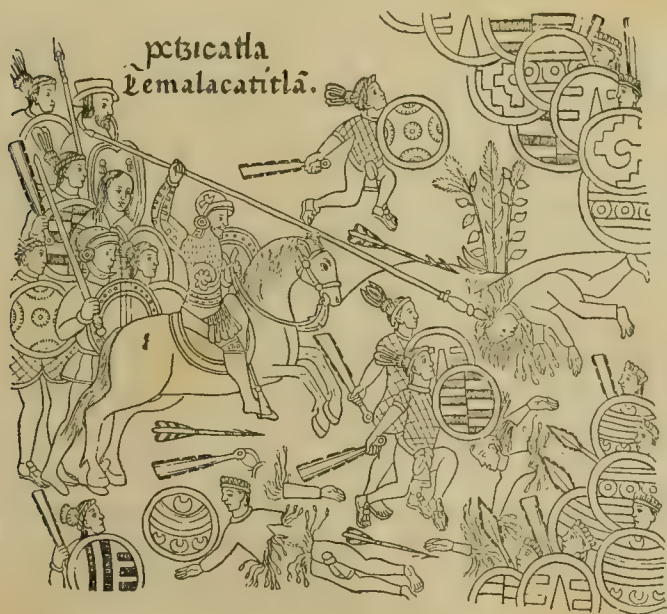 petzicatla
temalacatitlã.